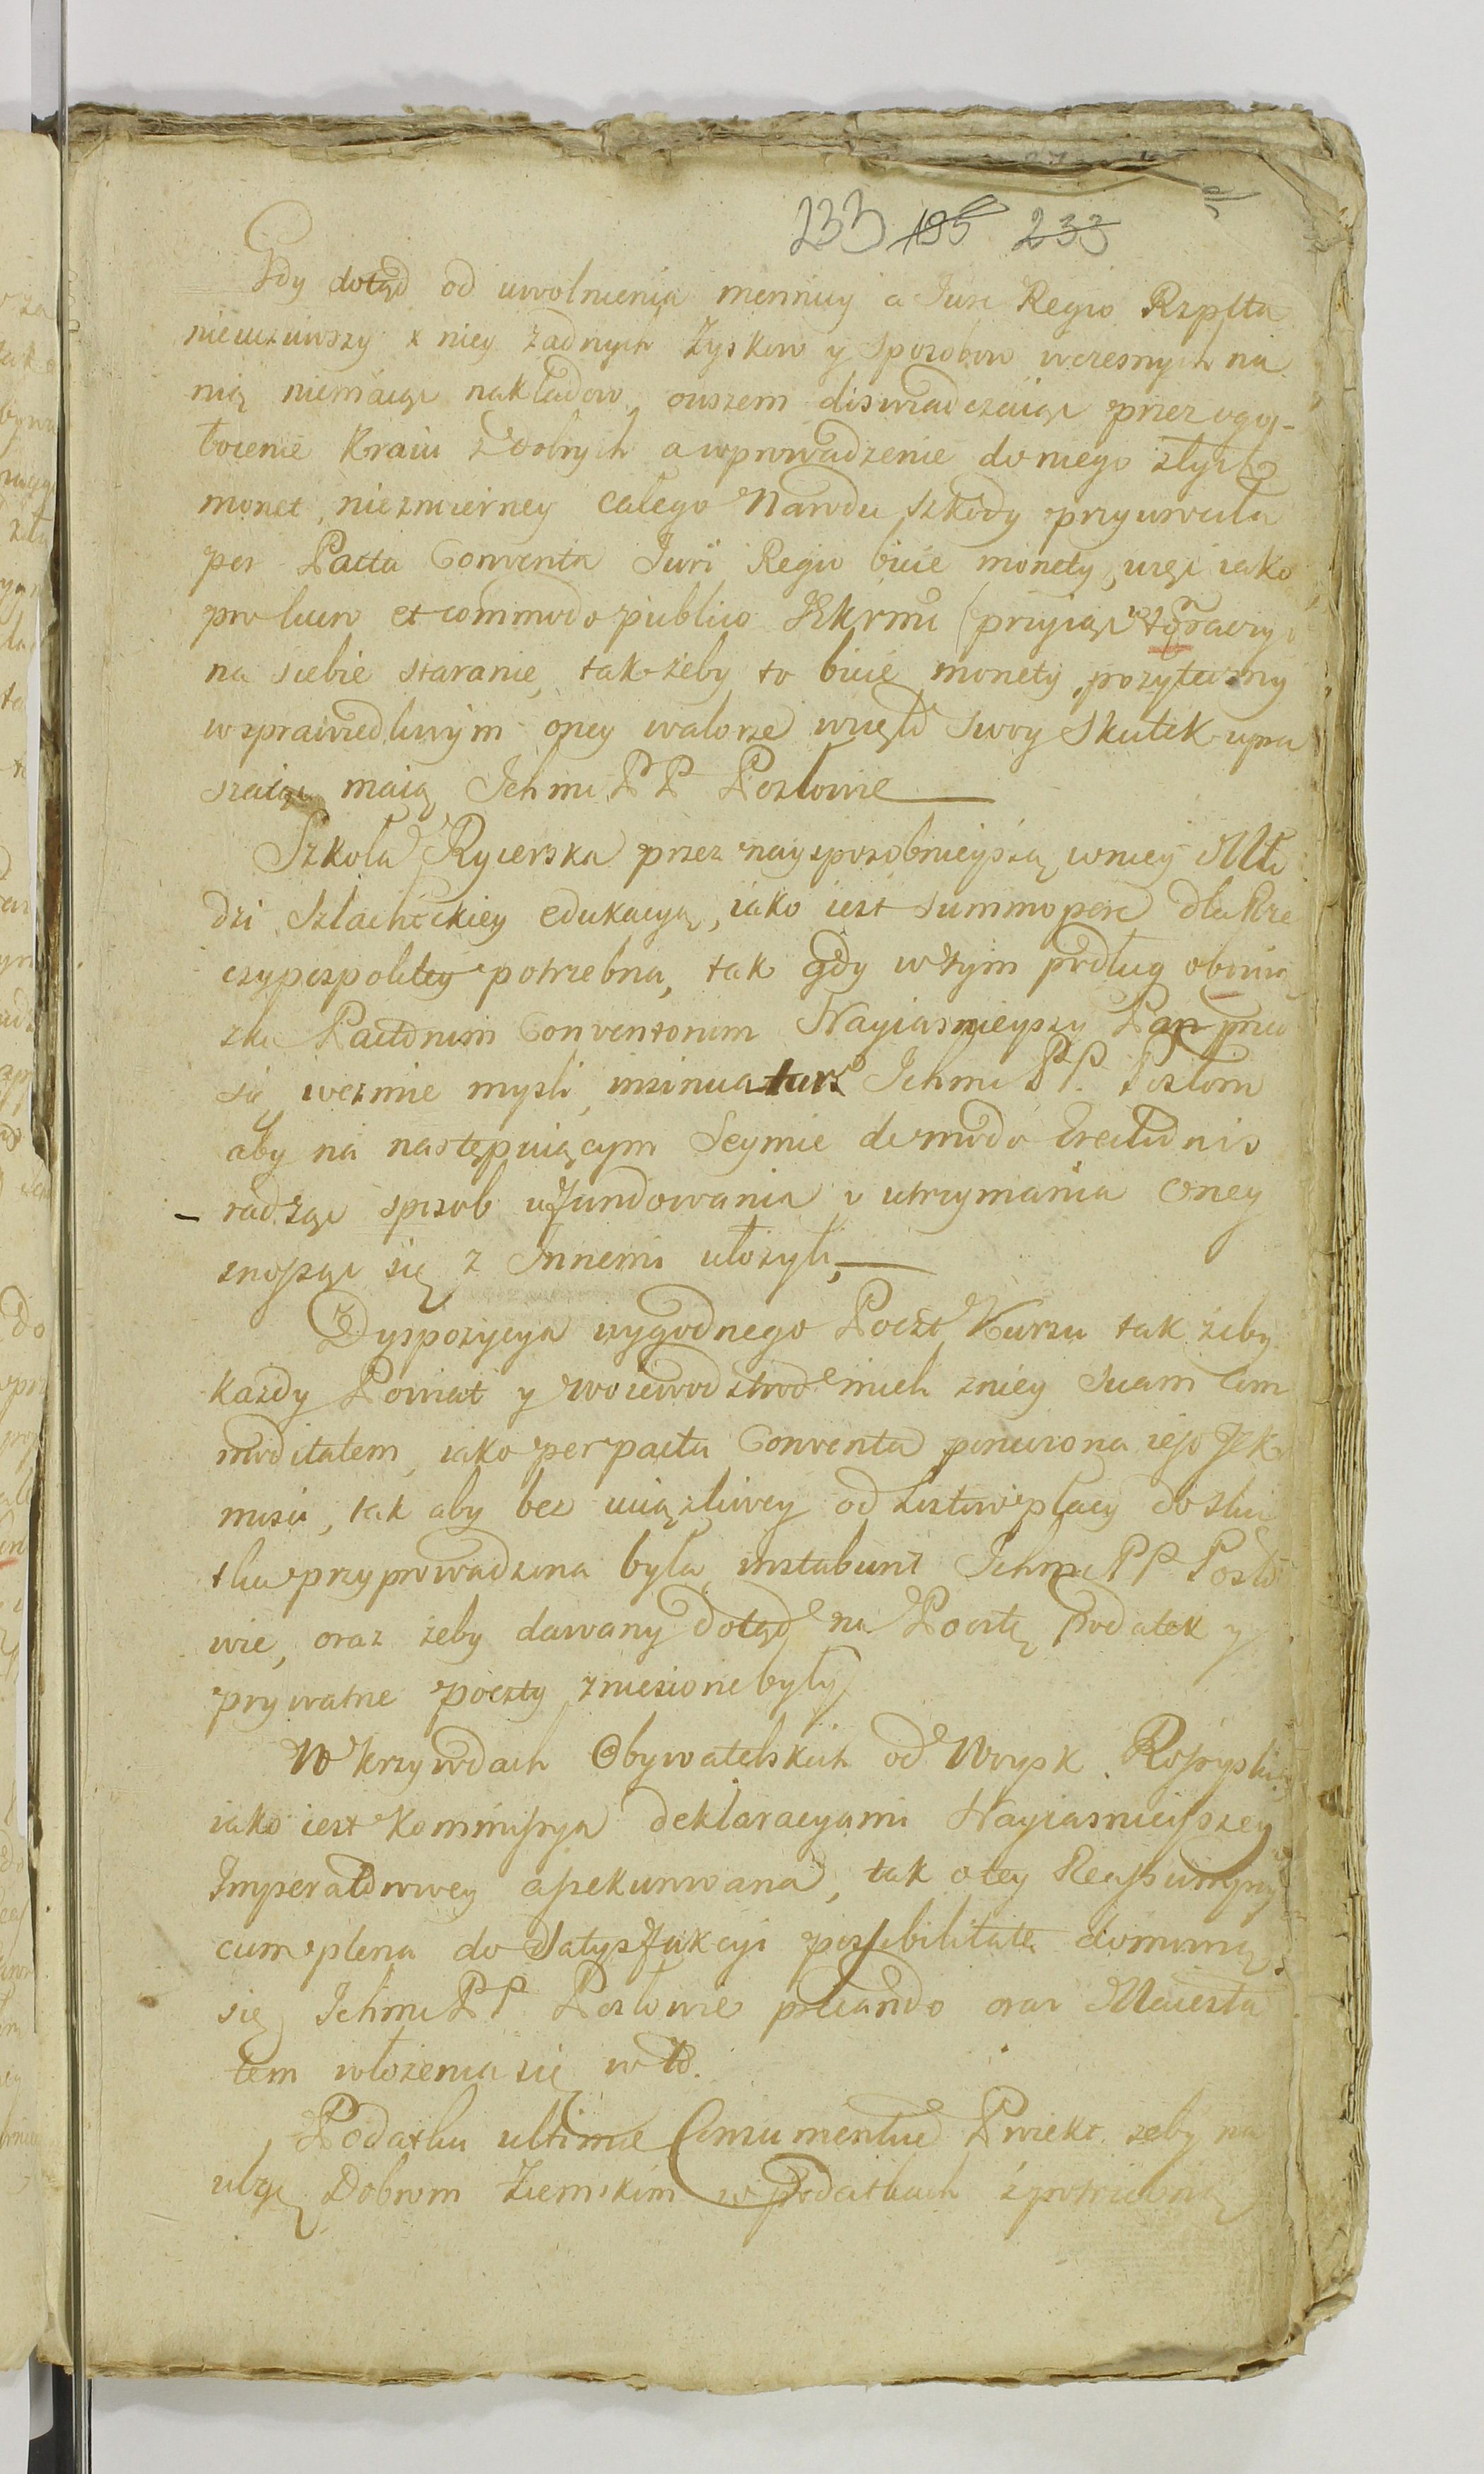 233 195 233
Gdy dotąd od uwolnienia mennicy a Jure Regio Rzplta
nieuczuwszy z niey żadnych Zyskow y sposobow wczesnych na
nię niemaiąc nakładow, owszem doswiadczaiąc przez ogo-
łocenie Kraiu z dobrych a wprowadzenie do niego złych
monet, niezmierney całego Narodu szkody przywrocila
per Pacta Conventa Juri Regio bicie monety, więc iako
pro lucro et commodo publico JKrmci przyiąc w tę raczy
na siebie staranie, tak żeby to bicie monety pożyteczny
w sprawiedliwym oney walorze wzięło swoy Skutek upra
szaiąc maią Jchmc PP Posłowie
Szkoła Rycerska przez naysposobnieyszą w niey Mło
dzi Szlacheckiey edukacyą, iako iest summopere dla Rze
czypospolitey potrzebna, tak gdy w tym podług obowią
zku Pactorum Conventorum Nayiasnieyszy Pan
się wezmie mysli, insinuatur Jchmc PP. Posłom
aby na następuiącym Seymie de modo
radząc sposob ufundowania i utrzymania oney
znosząc się z Innemi ułozyli,
Dyspozycya wygodnego Poczt Kursu tak żeby
każdy Powiat y Woiewodztwo mieli z niey suam Com
moditatem, iako per pacta Conventa poruczona iego JK
mści, tak aby bez uciążliwey od Listow płacy do sku
tku przyprowadzona była instabunt Jchmc PP Posło
wie, oraz żeby dawany dotąd na Pocztę podatek y
prywatne poczty zniesione były
W krzywdach Obywatelskich od Woysk Rossyskich
iako iest Kommissya deklaracyami Nayiasnieiszey
Imperatorowey assekurowana, tak o tey Reassumpcyą
cum plena do Satysfakcyi possibilitate domowią
się Jchmc PP Posłowie precando oraz Maiesta
tem włożenia się w to.
Podatku ultimae Consumentiae Proiekt żeby na
ulgę Dobrom Ziemskim w podatkach